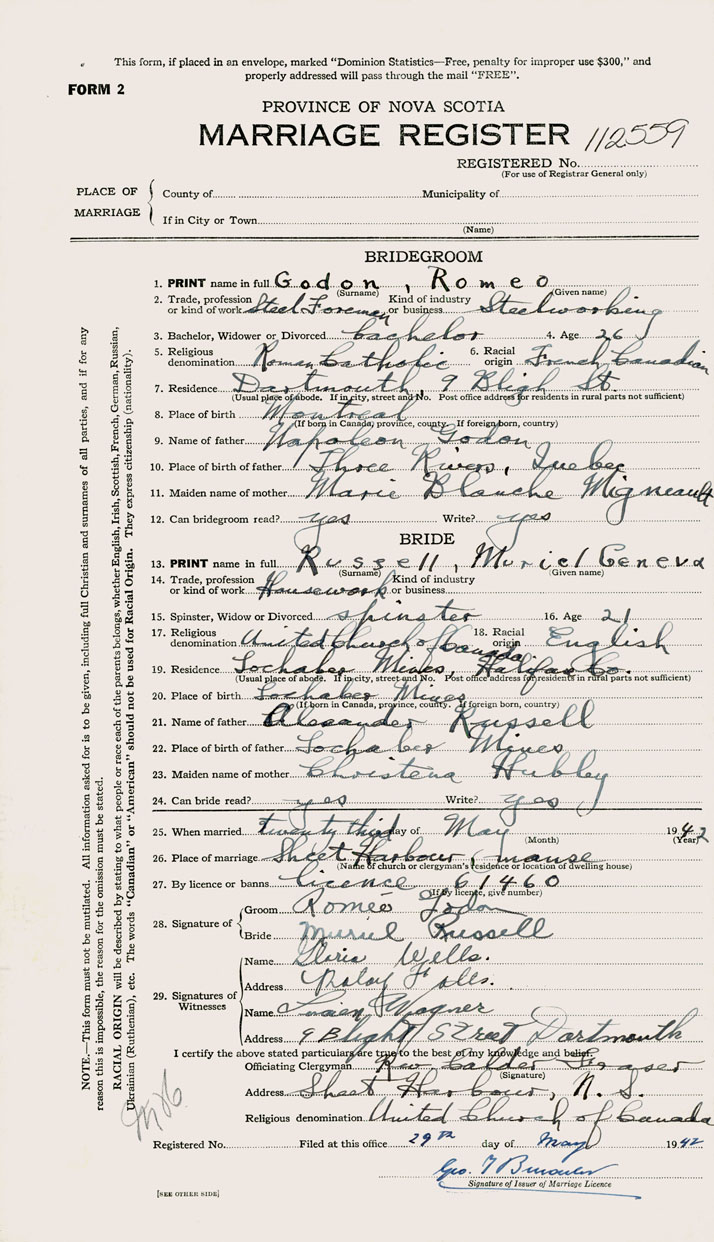 This form, if placed in an envelope, marked "Dominion Statistics—Free, penalty for improper use $300," and
properly addressed will pass through the mail "FREE".
FORM 2
PROVINCE OF NOVA SCOTIA
MARRIAGE REGISTER 112559
REGISTERED No.
(For use of Registrar General only)
PLACE OF MARRIAGE
County of Municipality of
If in City or Town
(Name)
BRIDEGROOM
1. PRINT name in full Godon, Romeo
(Surname) (Given name)
2. Trade, profession or kind of work Steel Foreman Kind of industry or business Steelworking
3. Bachelor, Widower or Divorced bachelor 4. Age 26
5. Religious denomination Roman Catholic 6. Racial origin French Canadian
7. Residence Dartmouth, 9 Bligh St.
(Usual place of abode. If in city, street and No. Post office address for residents in rural parts not sufficient)
8. Place of birth Montreal
(If born in Canada, province, county. If foreign born, country)
9. Name of father Napoleon Godon
10. Place of birth of father Three Rivers, Quebec
11. Maiden name of mother Marie Blanche Migneault
12. Can bridegroom read? yes Write? yes
BRIDE
13. PRINT name in full Russell, Muriel Geneva
(Surname) (Given name)
14. Trade, profession or kind of work Housework Kind of industry or business
15. Spinster, Widow or Divorced spinster 16. Age 21
17. Religious denomination United Church of Canada 18. Racial origin English
19. Residence Lochaber Mines, Halifax Co.
(Usual place of abode. If in city, street and No. Post office address for residents in rural parts not sufficient)
20. Place of birth Lochaber Mines
(If born in Canada, province, county. If foreign born, country)
21. Name of father Alexander Russell
22. Place of birth of father Lochaber Mines
23. Maiden name of mother Christena Hubley
24. Can bride read? yes Write? yes
25. When married twenty third day of May 1942
(Month) (Year)
26. Place of marriage Sheet Harbour, (manse
(Name of church or clergyman's residence or location of dwelling house)
27. By licence or banns licence 61460
(If by licence, give number)
28. Signature of
Groom Roméo Godon
Bride Muriel Russell
29. Signatures of Witnesses
Name Gloria Wells.
Address Falls.
Name Lucien Wagner
Address 9 Blight Street Dartmouth
I certify the above stated particulars are true to the best of my knowledge and belief.
Officiating Clergyman Rev Calder Fraser
(Signature)
Address Sheet Harbour, N. S.
Religious denomination United Church of Canada
Registered No. Filed at this office 29th day of May 1942
Geo. T
Signature of Issuer of Marriage Licence
[SEE OTHER SIDE]
NOTE.—This form must not be mutilated. All information asked for is to be given, including full Christian and surnames of all parties, and if for any
reason this is impossible, the reason for the omission must be stated.
RACIAL ORIGIN will be described by stating to what people or race each of the parents belongs, whether English, Irish, Scottish, French, German, Russian,
Ukrainian (Ruthenian), etc. The words "Canadian" or "American" should not be used for Racial Origin. They express citizenship (nationality).